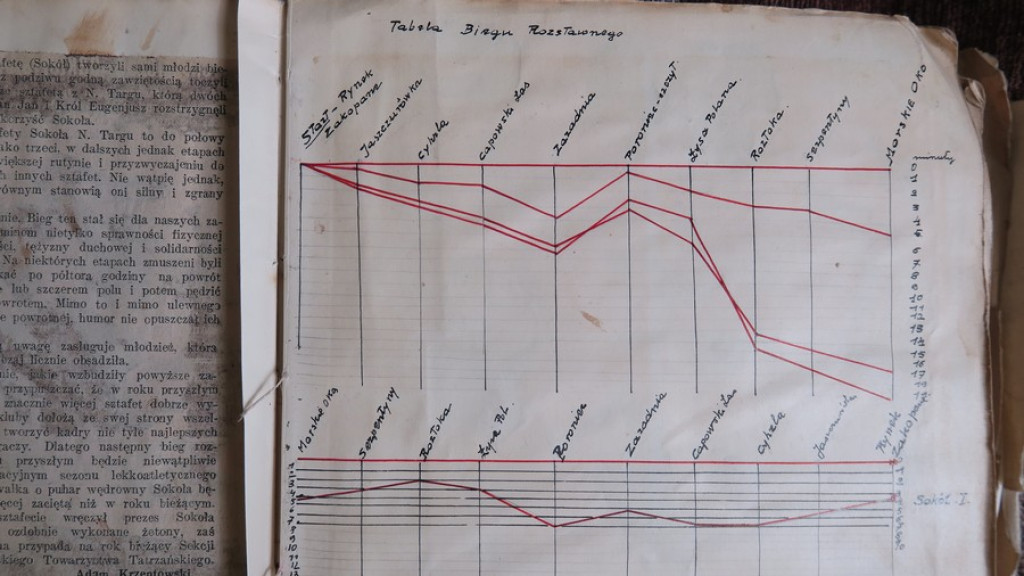 afetę (Sokół) tworzyli sami młodzi bie-
z podziwu godną zawziętością toczyli
sztafeta z N. Targu, którą dwóch
an Jan i Król Eugenjusz rozstrzygnęli
korzyść Sokoła.
fety Sokoła N. Targu to do połowy
ako trzeci, w dalszych jednak etapach
większej rutynie i przyzwyczajeniu do
h innych sztafet. Nie wątpię jednak,
równym stanowią oni silny i zgrany
nie. Bieg ten stał się dla naszych za-
minem nietylko sprawności fizycznej
ści, tężyzny duchowej i solidarności
Na niektórych etapach zmuszeni byli
kać po półtorą godziny na powrót
e lub szczerem polu i potem pędzić
owrotem. Mimo to i mimo ulewnego
e powrotnej, humor nie opuszczał ich
uwagę zasługuje młodzież, która
czaj licznie obsadziła.
nie, jakie wzbudziły powyższe za-
przypuszczać, że w roku przyszłym
znacznie więcej sztafet dobrze wy-
kluby dołożą ze swej strony wszel-
tworzyć kadry nie tyle najlepszych
aczy. Dlatego następny bieg roz-
przyszłym będzie niewątpliwie
acyjnym sezonu lekkoatletycznego
walka o puhar wędrowny Sokoła bę-
ęcej zacięta niż w roku bieżącym.
sztafecie wręczył prezes Sokoła
ozdobnie wykonane żetony, zaś
na przypada na rok bieżący Sekcji
kiego Towarzystwa Tatrzańskiego.
Adam Krzeptowski
Tabela Biegu Rozstawnego
Start - Rynek
Zakopane
Jaszczurówka
Cyhla
Capowski Las
Zazadnia
Poroniec-szczyt
Łysa Polana
Roztoka
Serpentyny
MORSKIE OKO
minuty
0
1
2
3
4
5
6
7
8
9
10
11
12
13
14
15
16
17
Morskie Oko
Serpentyny
Roztoka
Łysa Pol.
Poroniec
Zazadnia
Capowski Las
Cyhla
Rynek
Zakopane
Sokół I.
9
10
11
12